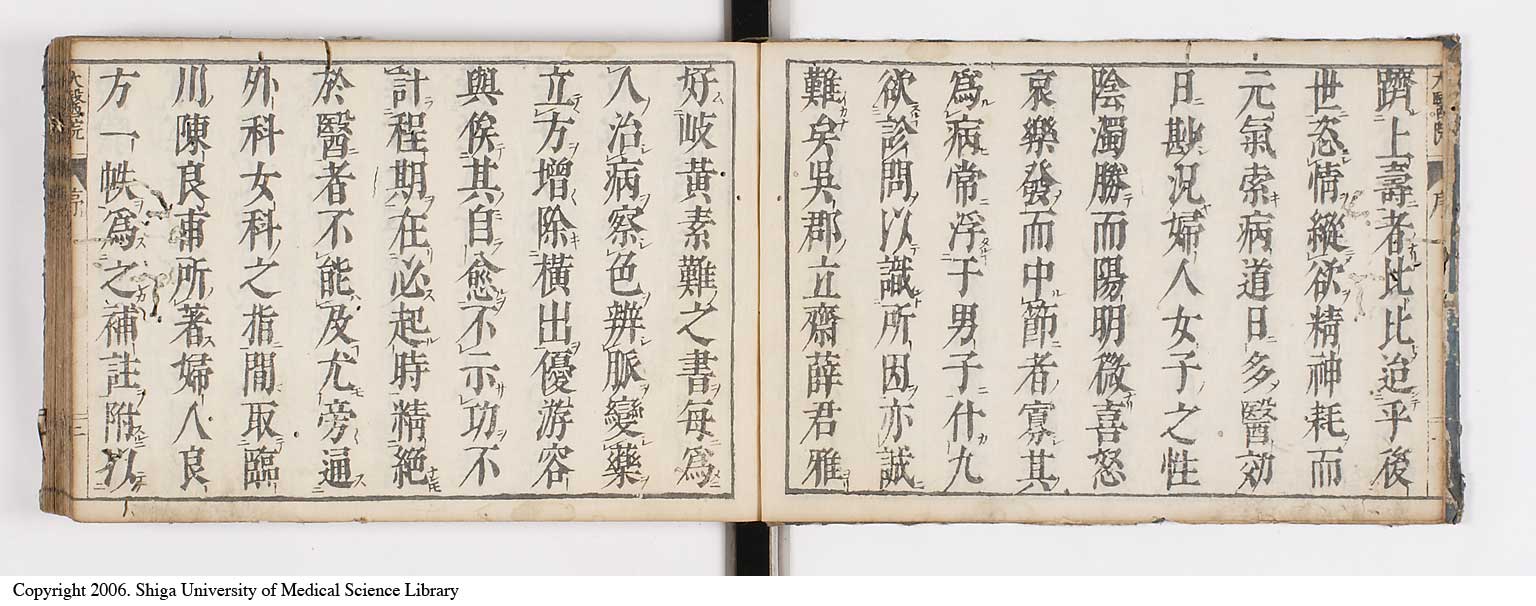 躋上壽者比比迨乎後
世恣情縱欲精神耗而
元氣索病道日多醫効
日尠况婦人女子之性
陰濁勝而陽明微喜怒
哀樂發而中節者寡其
爲病常浮于男子什九
欲診問以識所因亦誠
難矣吳郡立齋薛君雅
好岐黃素難之書每爲
人治病察色辨脈變藥
立方增除横出優游容
與俟其自愈不示功不
計程期在必起時精絶
於醫者不能及尤旁通
外科女科之指間取臨
川陳良甫所著婦人良
方一帙爲之補註附以
Copyright 2006. Shiga University of Medical Science Library